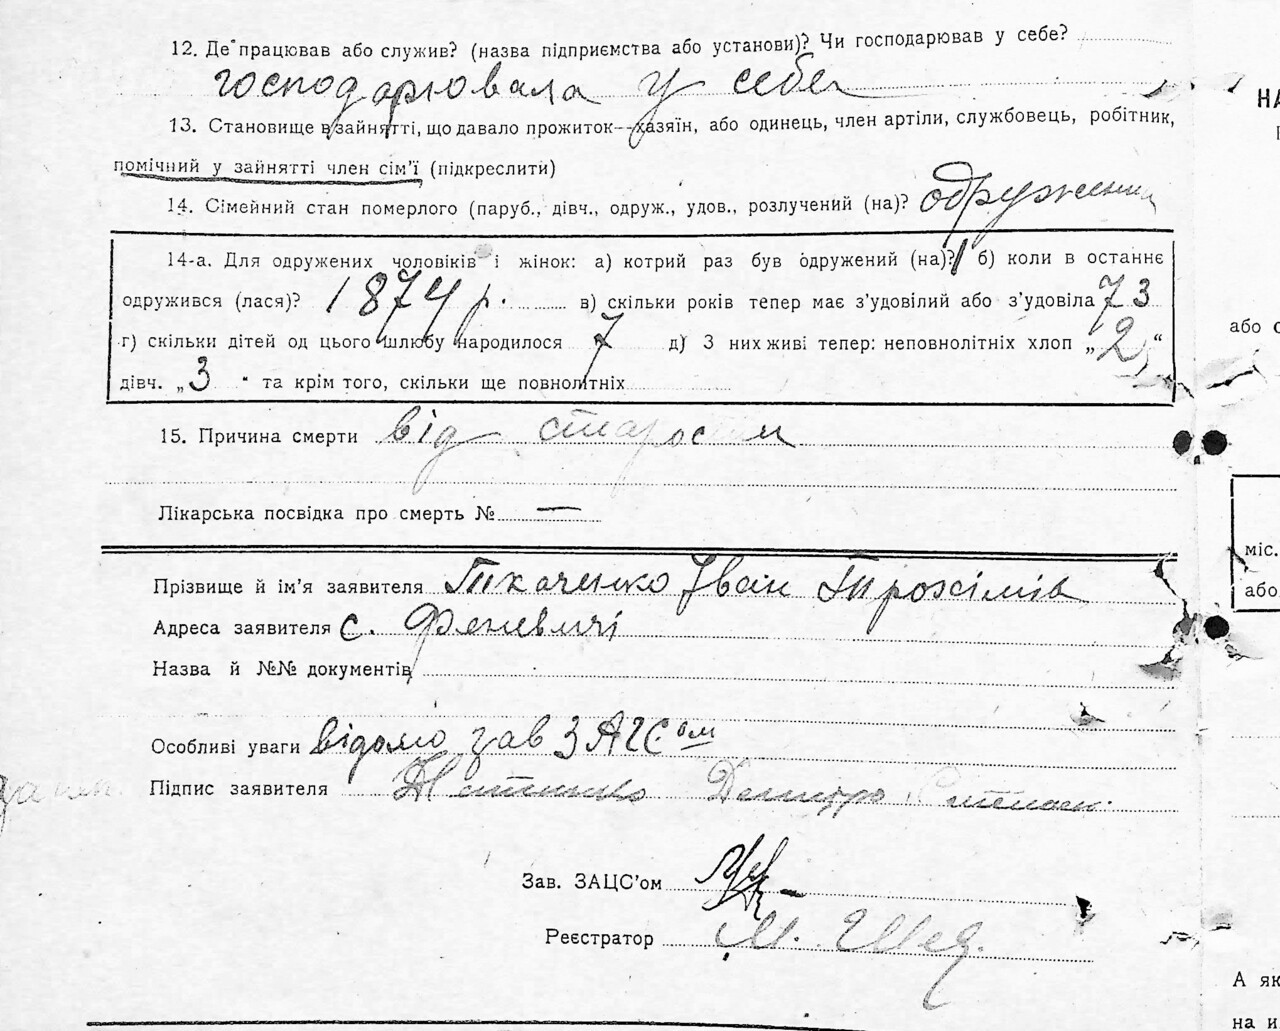 12. Де працював або служив? (назва підприємства або установи)? Чи господарював у себе?
господарювала у себе
13. Становище в зайнятті, що давало прожиток—хазяїн, або одинець, член артіли, службовець, робітник,
помічний у зайнятті член сім'ї (підкреслити)
14. Сімейний стан померлого (паруб., дівч., одруж., удов., розлучений (на)? одружений
14-а. Для одружених чоловіків і жінок: а) котрий раз був одружений (на)? 1 б) коли в останнє
одружився (лася)? 1874 р. в) скільки років тепер має з'удовілий або з'удовіла 73
г) скільки дітей од цього шлюбу народилося 7 д) З них живі тепер: неповнолітніх хлоп „2"
дівч. „3" та крім того, скільки ще повнолітніх
15. Причина смерти від старости
Лікарська посвідка про смерть № —
Прізвище й ім'я заявителя Ткаченко Іван Трохимів
Адреса заявителя с. Феневичі
Назва й №№ документів
Особливі уваги відомо зав ЗАГС ом
Підпис заявителя Дмитро
Зав. ЗАЦС'ом
Реєстратор М.
НА
або с
міс.
або
А як
на и